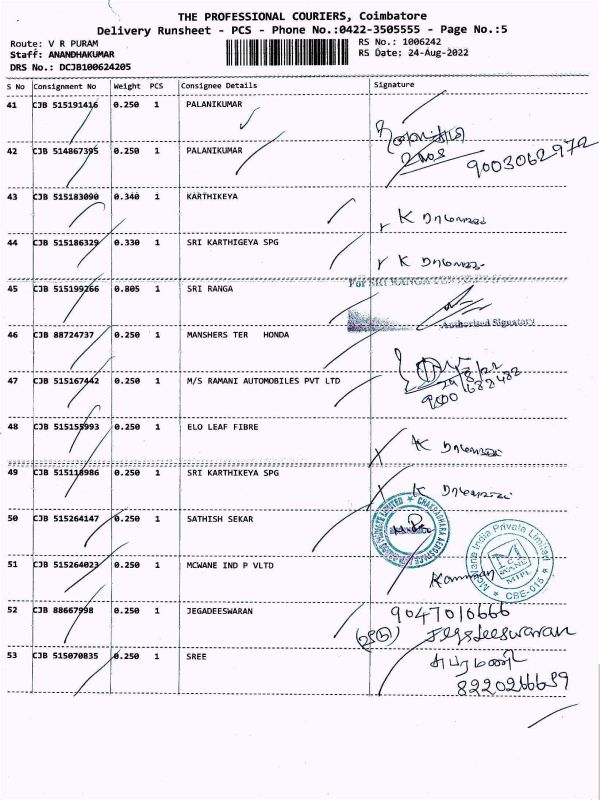 THE PROFESSIONAL COURIERS, Coimbatore
Delivery Runsheet - PCS - Phone No.:0422-3505555 - Page No.:5
Route: V R PURAM
RS No.: 1006242
Staff: ANANDHAKUMAR
RS Date: 24-Aug-2022
DRS No.: DCJB100624205
S No Consignment No Weight PCS Consignee Details Signature
41 CJB 515191416 0.250 1 PALANIKUMAR
42 CJB 514867395 0.250 1 PALANIKUMAR
9003062972
43 CJB 515183090 0.340 1 KARTHIKEYA
K
44 CJB 515186329 0.330 1 SRI KARTHIGEYA SPG
K
For SRI RANGA
45 CJB 515199266 0.805 1 SRI RANGA
Authorised Signatory
46 CJB 88724737 0.250 1 MANSHERS TER HONDA
47 CJB 515167442 0.250 1 M/S RAMANI AUTOMOBILES PVT LTD
24/8/22
48 CJB 515155993 0.250 1 ELO LEAF FIBRE
K
49 CJB 515118986 0.250 1 SRI KARTHIKEYA SPG
K
50 CJB 515264147 0.250 1 SATHISH SEKAR
McWane India Private Limited
CBE-015
51 CJB 515264023 0.250 1 MCWANE IND P VLTD
52 CJB 88667998 0.250 1 JEGADEESWARAN
9047016666
Jegadeeswaran
53 CJB 515070835 0.250 1 SREE
8220266659